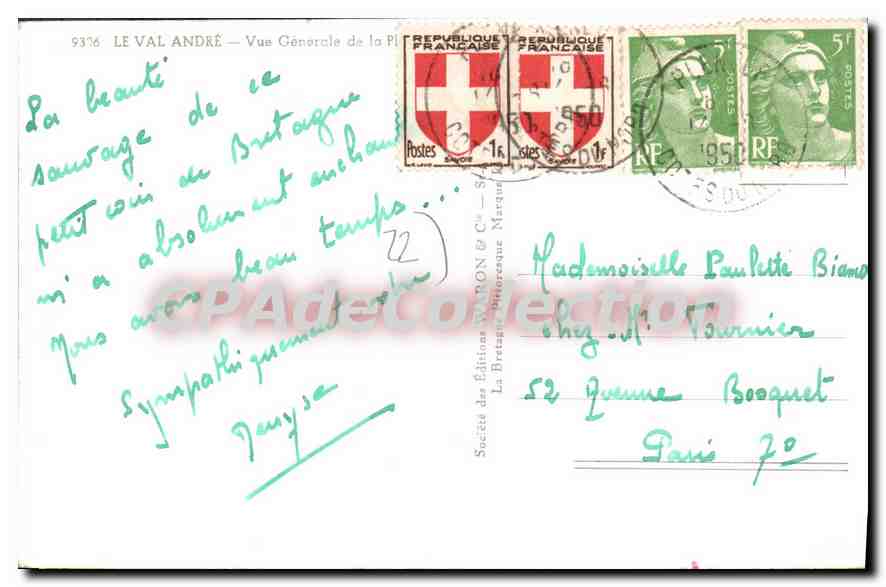 9326 LE VAL ANDRÉ — Vue Générale de la Pl
La beauté
sauvage de ce
petit coin de Bretagne
m'a absolument enchantée
Nous avons beau temps...
Sympathiquement votre
Denyse
22
Société des Éditions WARON & Cie — S
La Bretagne Pittoresque Marque
REPUBLIQUE
FRANÇAISE
Postes 1F
SAVOIE
REPUBLIQUE
FRANÇAISE
Postes 1F
SAVOIE
5F
POSTES
RF
5F
POSTES
RF
1950
Mademoiselle Paulette Bianco
Chez Mr Tournier
52 Avenue Bosquet
Paris 7o
CPAdeCollection